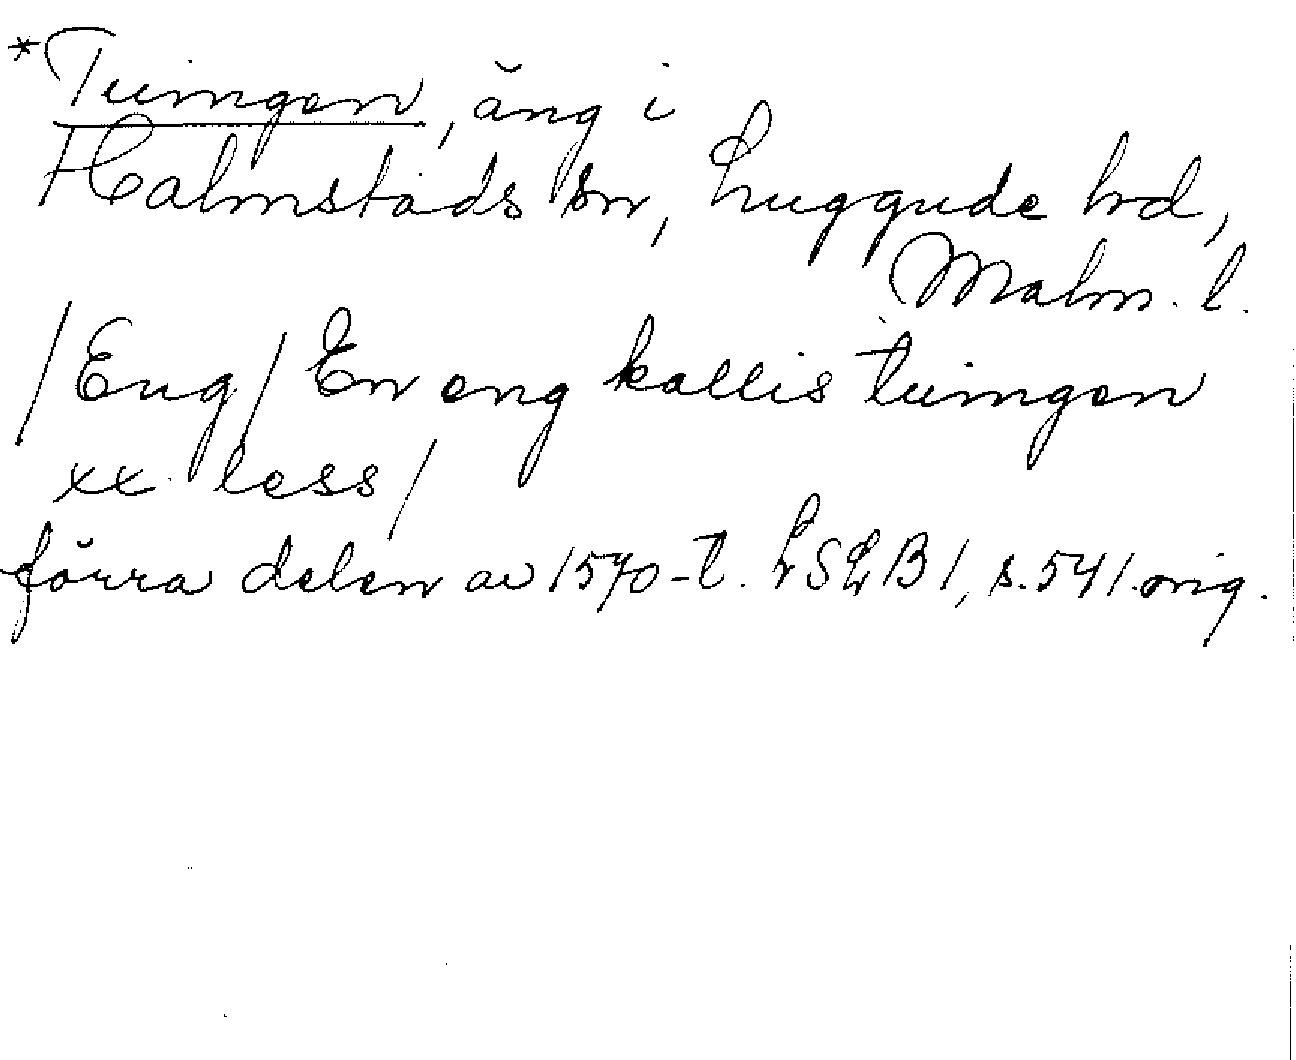 *Tuingen, äng i
Halmstads sn, Luggude hd,
Malm. l.
/Eng/ En eng kallis tuingen
xx less/
förra delen av 1570-t. LSLB1, s. 541 orig.